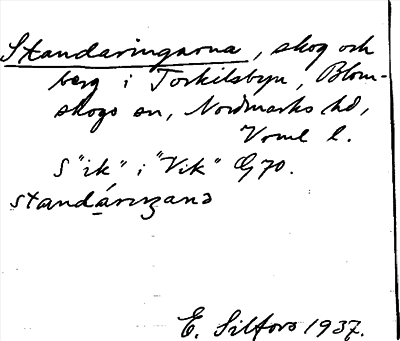 Standaringarna, skog och
berg i Torkilsbyn, Blom-
skogs sn, Nordmarks hd,
Vrml l.
S "ik" i "Vik" G 70.
standáriŋana
E. Silfors 1937.